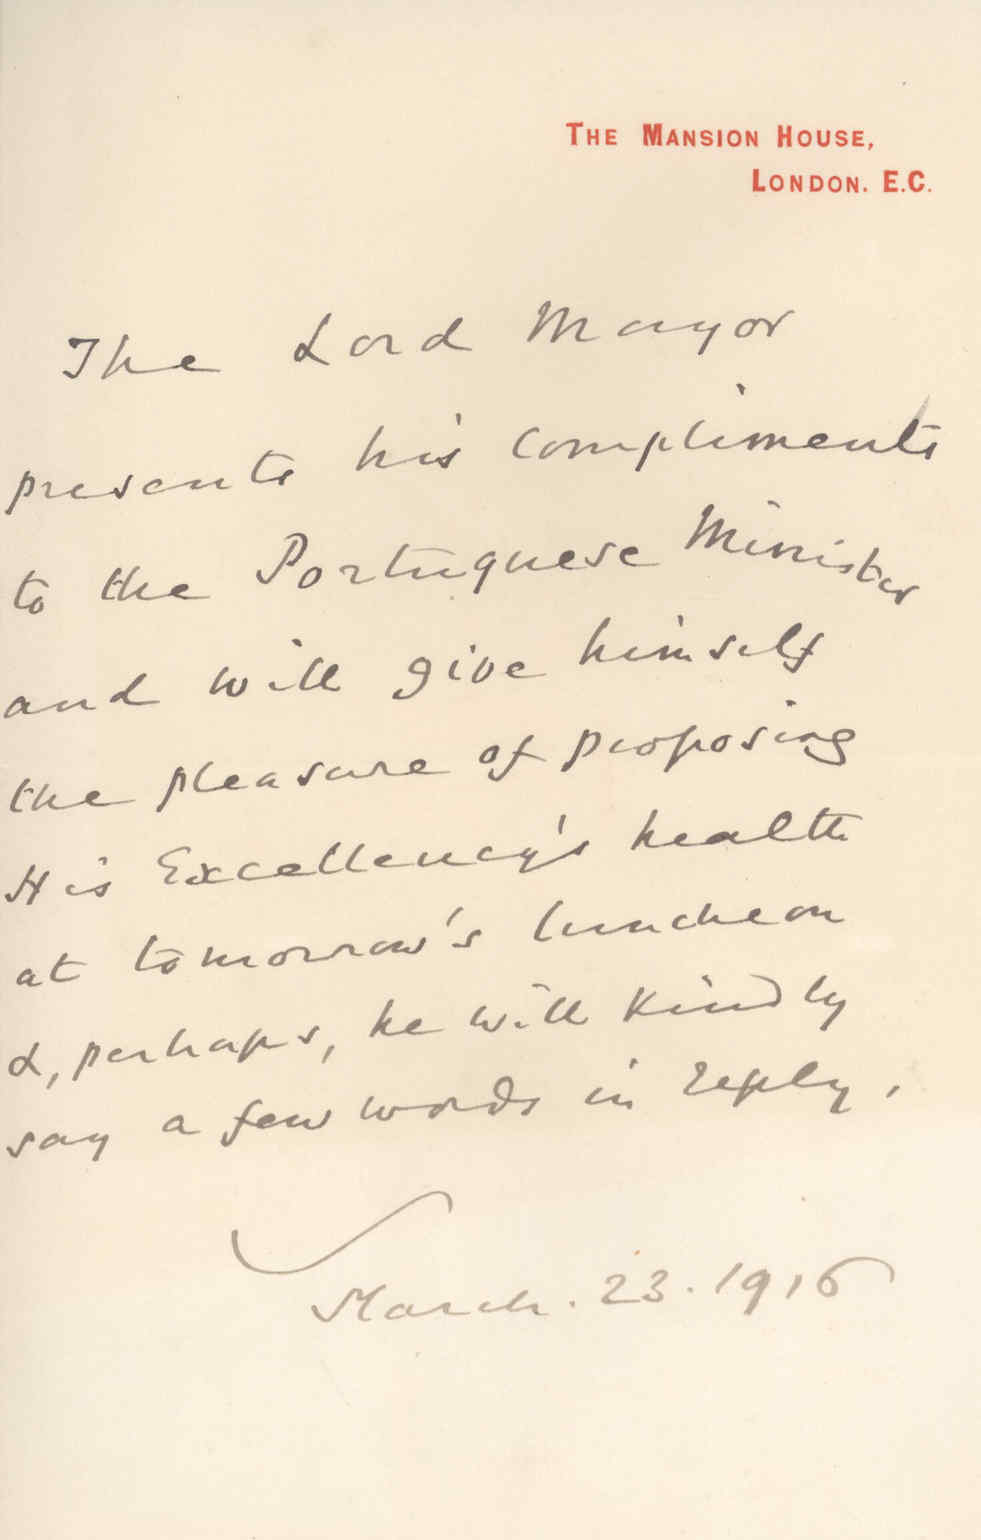 THE MANSION HOUSE,
LONDON. E.C.
The Lord Mayor
presents his compliments
to the Portuguese Minister
and will give himself
the pleasure of proposing
His Excellency's health
at tomorrow's luncheon
&, perhaps, he will kindly
say a few words in reply.
March. 23. 1916